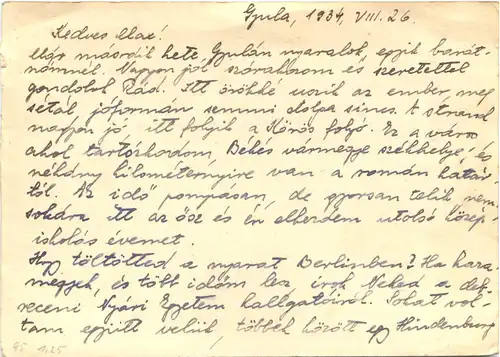 Gyula, 1934, VIII. 26.
Kedves Max!
Már másfél hete Gyulán nyaralok, egyik barát-
nőmnél. Nagyon jól szórakozom és szeretettel
gondolok Rád. Itt örökké úszik az ember, meg
sétál, jóformán semmi dolga sincs. A strand
nagyon jó, itt folyik a Körös folyó. Ez a város
ahol tartózkodom, Békés vármegye székhelye, és
néhány kilométernyire van a román határ-
tól. Az idő pompásan, de gyorsan telik, nem-
sokára itt az ősz és én elkezdem utolsó közép-
iskolás évemet.
Hogy töltötted a nyarat Berlinben? Ha haza-
megyek, és több időm lesz írok Neked a deb-
receni Nyári Egyetem hallgatóiról. Sokat vol-
tam együtt velük, többek között egy Hindenburg
95 1,25